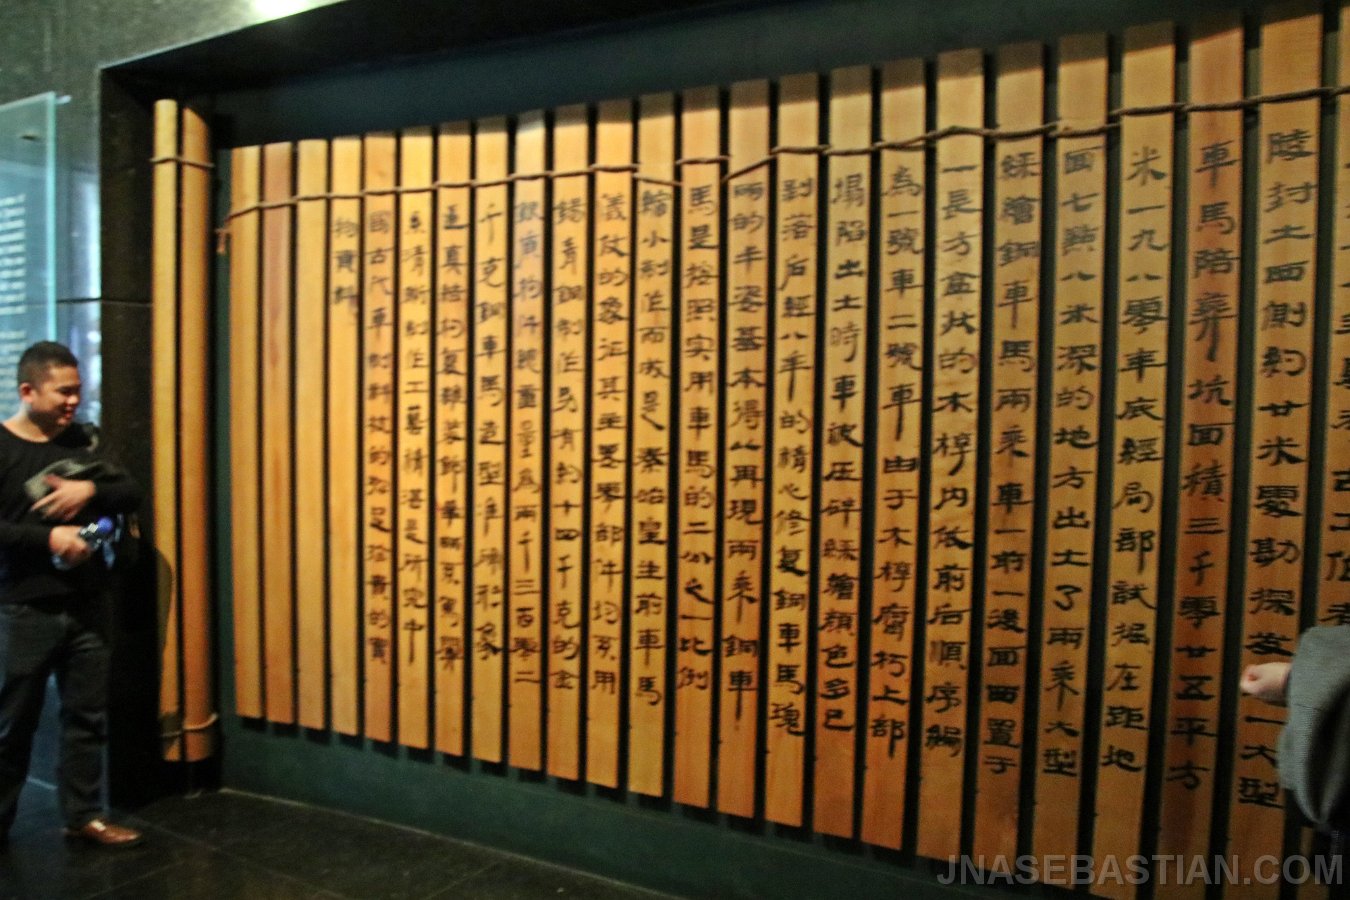 陵封土西側約廿米處勘探发一大型
車馬陪葬坑面積三千零廿五平方
米一九八零年底經局部試掘在距地
面七點八米深的地方出土了兩乘大型
綵繪銅車馬兩乘車一前一後面西置于
一長方盒状的木椁内依前后順序編
為一號車二號車由于木椁腐朽上部
塌陷出土時車被压碎綵繪顏色多已
剥落后經八年的精心修复銅車馬瑰
丽的丰姿基本得以再現兩乘銅車
馬是按照实用車馬的二分之一比例
縮小制作而成是秦始皇生前車馬
儀仗的象征其主要零部件均系用
錫青銅制作另有約十四千克的金
銀寅构件總重量為兩千三百零二
千克銅車馬造型准确形象
逼真結构复雜装飾華丽系駕
系清晰制作工藝精湛是所究中
國古代車制料杖的弥足珍貴的實
物資料
JNASEBASTIAN.COM